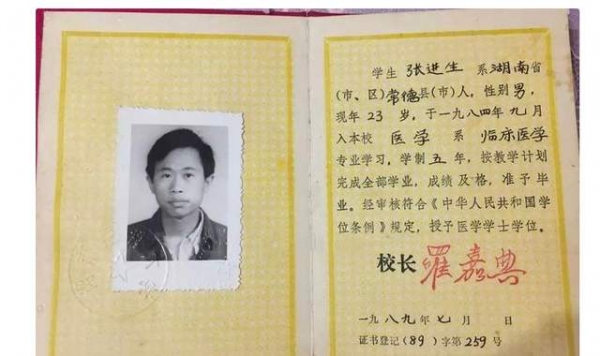 学生 张进生 系湖南省
(市、区)常德县(市)人。性别男，
现年 23 岁，于一九八四年九月
入本校 医学 系 临床医学
专业学习，学制五年，按教学计划
完成全部学业，成绩及格，准予毕
业。经审核符合《中华人民共和国学
位条例》规定，授予医学学士学位。
校长 罗嘉典
一九八九年七月 日
证书登记(89)字第259号